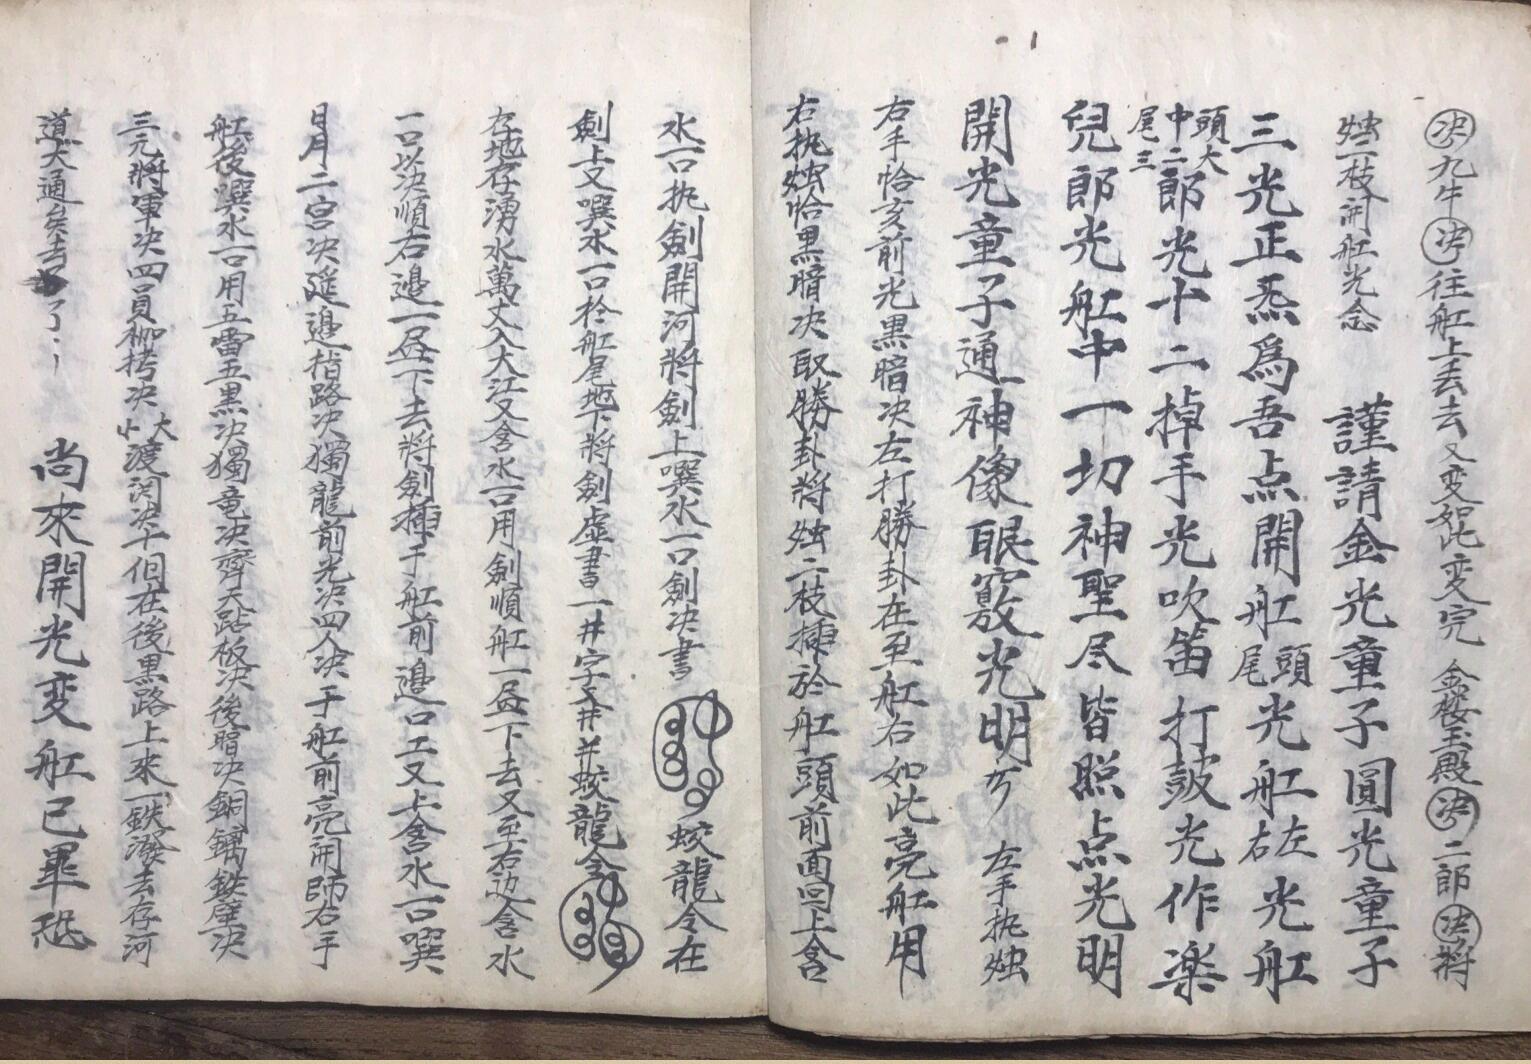 决九牛决往舡上丢去又变如此変完 金楼玉殿决二郎决將
烛一枝開舡光念 謹請金光童子圓光童子
三光正炁爲吾点開舡頭尾光舡左右光舡
頭大中二尾三郎光十二掉手光吹笛打鼓光作楽
兒郎光舡中一切神聖尽皆照点光明
開光童子通神像眼竅光明 左手执烛
右手恰亥前光黒暗决左打勝卦在至舡右如此亮舡用
右执烛恰黒暗决取勝卦將烛二枝插於舡頭前面回上含
水一口执劍開河將劍上噀水一口劍决書 蛟龍令在
劍上又噀水一口於舡尾地下將劍虚書一井字文井井蛟龍令
在地存湧水萬丈入大江又含水一口用劍順舡一昷下去又至右边含水
一口以决順右邉一昷下去將劍插于舡前邉口工又上含水一口噀
日月二宫决遥邉指路决獨龍前光决四人决于舡前亮開師右手
舡後噀水一口用五雷五黒决獨竜决齊天跕板决後暗决銅鏽鉄壁决
三元將軍决四員枷拷决大小渡関决午但在後黒路上來一鉄潑去存河
道大通矣去了 尚來開光变舡已畢恐